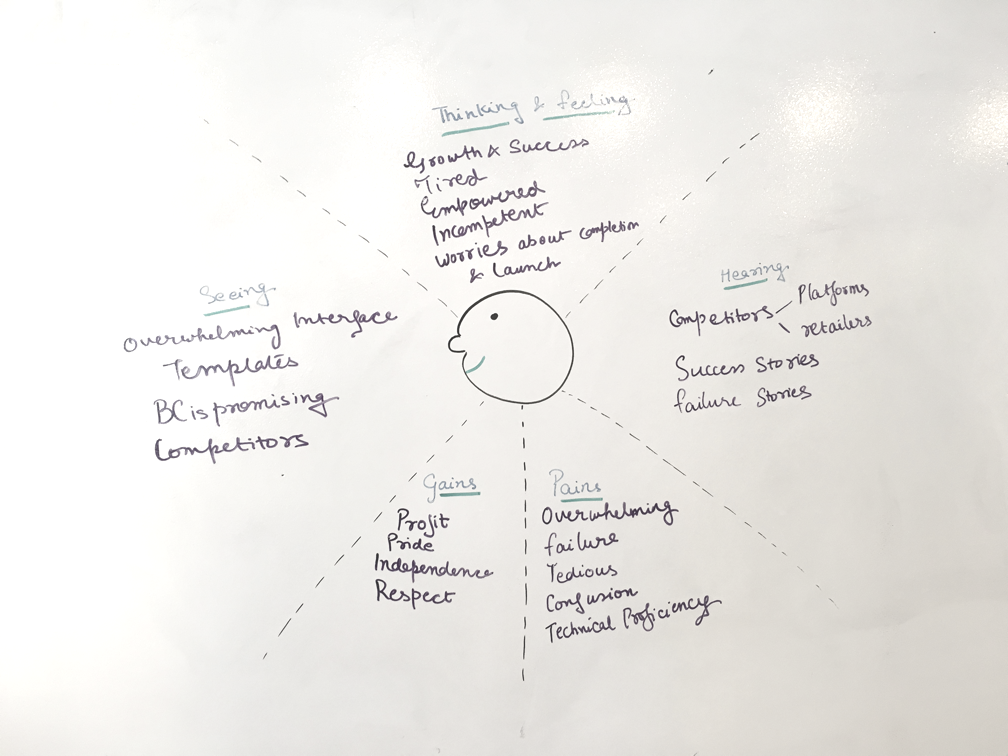 Thinking & feeling
Growth & Success
Tired
Empowered
Incompetent
Worries about completion
& Launch
Seeing
Overwhelming Interface
Templates
BC is promising
Competitors
Hearing
Competitors
Platforms
retailers
Success Stories
failure Stories
Gains
Profit
Pride
Independence
Respect
Pains
Overwhelming
failure
Tedious
Confusion
Technical Proficiency